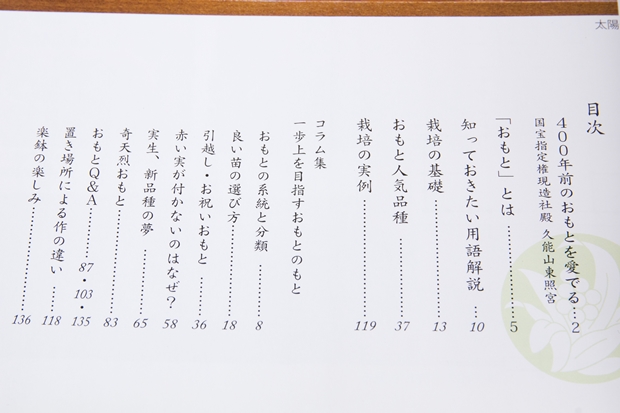 太陽
目次
400年前のおもとを愛でる…2
国宝指定権現造社殿 久能山東照宮
「おもと」とは…………5
知っておきたい用語解説…10
栽培の基礎…………13
おもと人気品種…………37
栽培の実例…………119
コラム集
一歩上を目指すおもとのもと
おもとの系統と分類…………8
良い苗の選び方…………18
引越し・お祝いおもと…………36
赤い実が付かないのはなぜ?…58
実生、新品種の夢…………65
奇天烈おもと…………83
おもとQ&A…………87・103・135
置き場所による作の違い…………118
楽鉢の楽しみ…………136